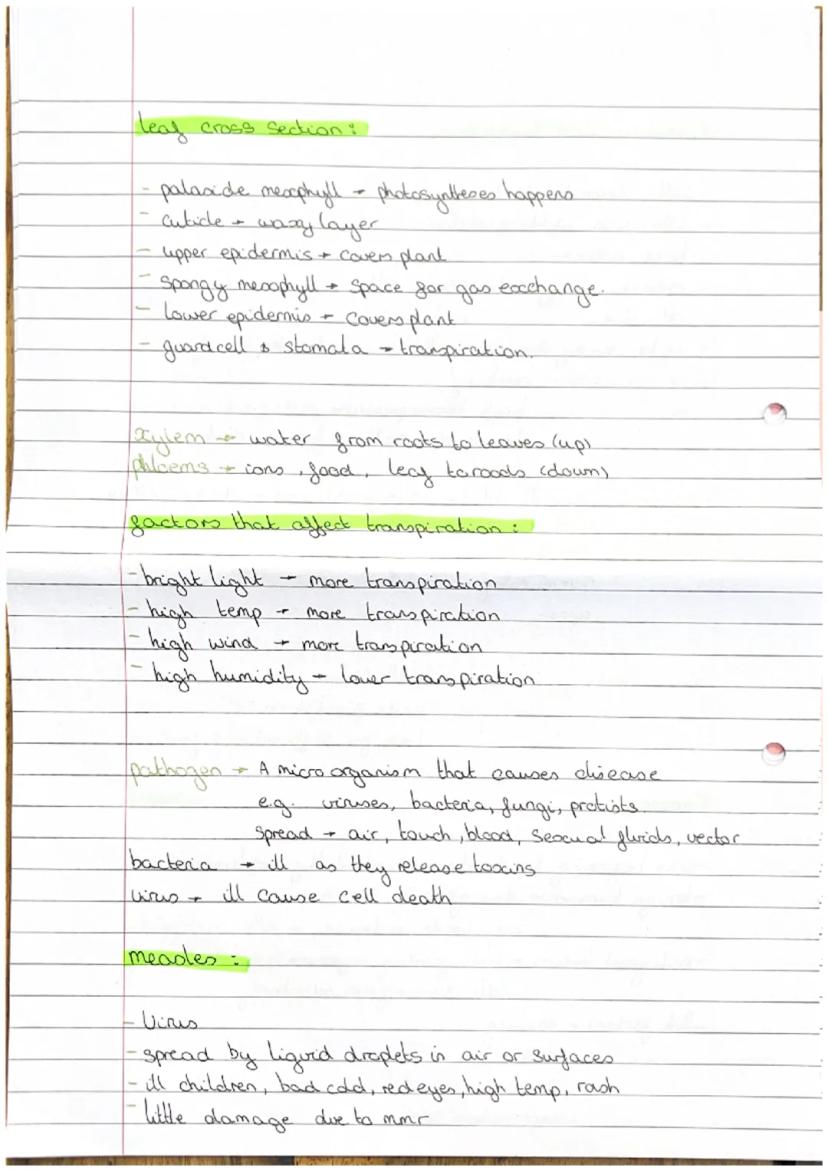 leaf cross section:
- palaside mesophyll → photosyntheses happens
- cuticle → waxy layer
- upper epidermis → covers plant
- spongy mesophyll → space for gas exchange.
- lower epidermis → covers plant
- guard cell & stomata → transpiration.
xylem → water from roots to leaves (up)
phloems → ions, food, leaf to roods (down)
factors that affect transpiration:
- bright light → more transpiration
- high temp → more transpiration
- high wind → more transpiration
- high humidity → lower transpiration
pathogen → A micro organism that causes disease
e.g. viruses, bacteria, fungi, protists.
spread → air, touch, blood, sexual fluids, vector
bacteria → ill as they release toxins
virus → ill cause cell death
measles:
- Virus
- spread by liquid droplets in air or surfaces
- ill children, bad cold, red eyes, high temp, rash
- little damage due to mmr